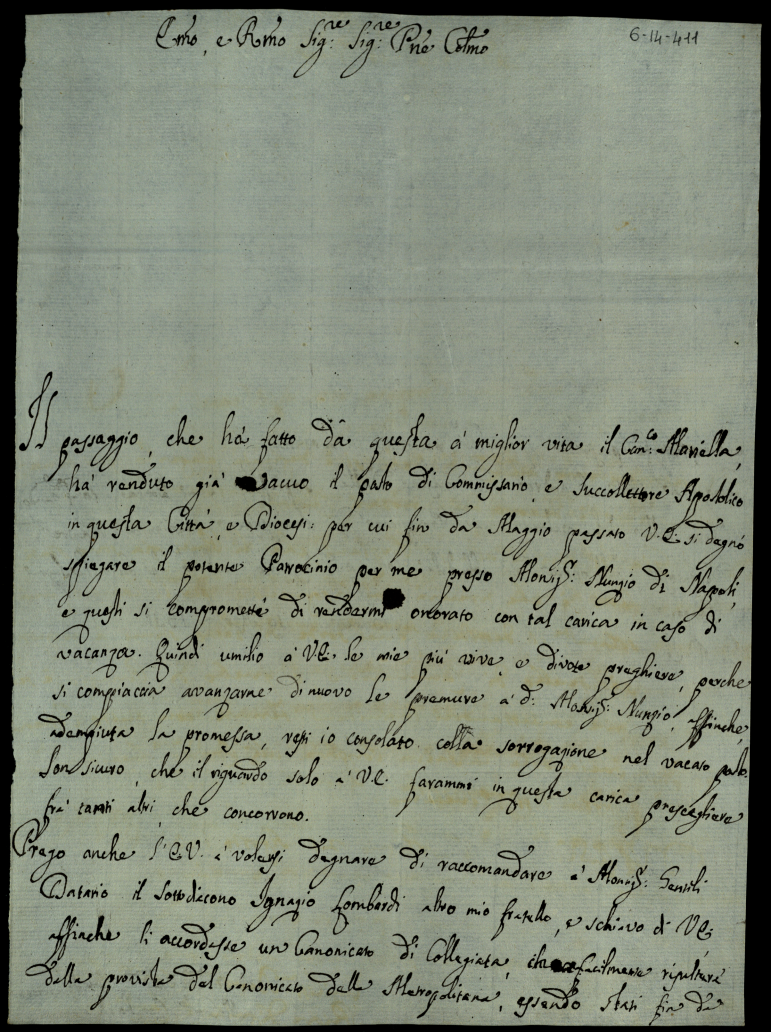 6-14-411
Emo, e Rmo Sig:re Sig:re Pne Colmo
Il passaggio, che hà fatto dà questa à miglior vita il Can:co Maviella,
hà renduto già vacuo il posto di Commissario, e Succollettore Apostolico
in questa Città, e Diocesi: per cui fin da Maggio passato V.E: si degnò
spiegare il potente Patrocinio per me presso Monsig:r Nunzio di Napoli,
e questi si compromette di rendermi onorato con tal carica in caso di
vacanza. Quindi umilio à V.E: le mie più vive, e divote preghiere, perche
si compiaccia avanzarne di nuovo le premure à d:o Monsig:r Nunzio, affinche,
adempiuta la promessa, resti io consolato colla sorrogazione nel vacato posto.
Son sicuro, che il riguardo solo à V.E. farammi in questa carica prescegliere
frà tanti altri, che concorrono.
Prego anche l'E.V. à volersi degnare di raccomandare à Monsig:r Gentili
Datario il Sottodiacono Ignazio Lombardi altro mio fratello, e schiavo di V.E:,
affinche li accordasse un Canonicato di Collegiata, che facilmente risulterà
dalla provista del Canonicato della Metropolitana, essendo stati fin da